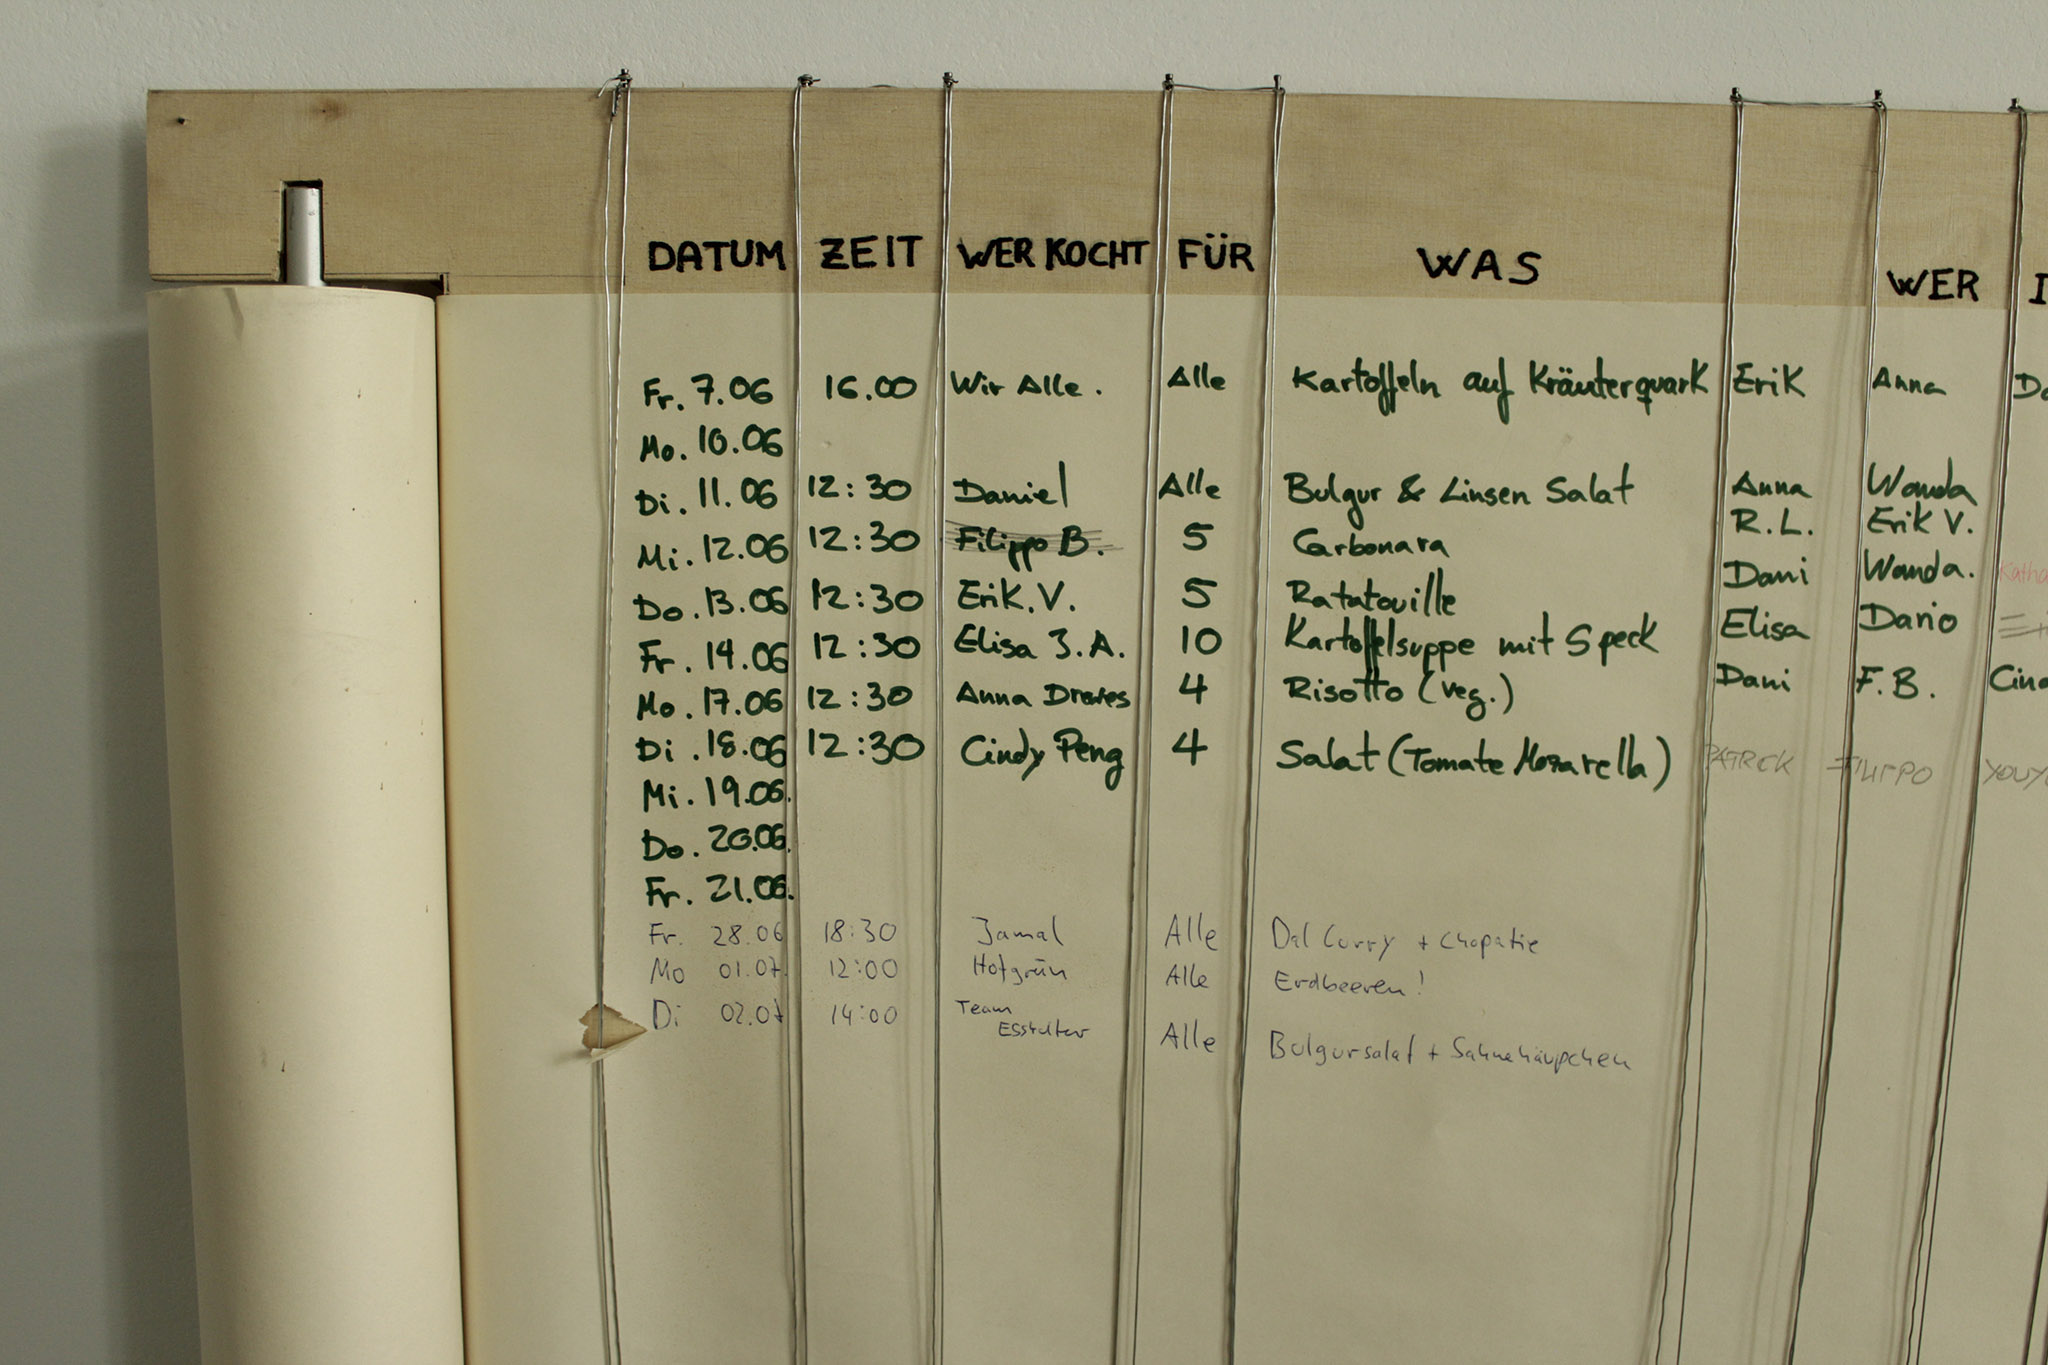 DATUM ZEIT WER KOCHT FÜR WAS WER
Fr. 7.06 16.00 Wir Alle. Alle Kartoffeln auf Kräuterquark Erik Anna
Mo. 10.06
Di. 11.06 12:30 Daniel Alle Bulgur & Linsen Salat Anna Wanda
Mi. 12.06 12:30 Filippo B. 5 Carbonara R.L. Erik V.
Do. 13.06 12:30 Erik. V. 5 Ratatouille Dani Wanda.
Fr. 14.06 12:30 Elisa J.A. 10 Kartoffelsuppe mit Speck Elisa Dario
Mo. 17.06 12:30 Anna Drewes 4 Risotto (veg.) Dani F.B.
Di. 18.06 12:30 Cindy Peng 4 Salat (Tomate Mozarella) PATRCK FILIPPO
Mi. 19.06.
Do. 20.06.
Fr. 21.06.
Fr. 28.06 18:30 Jamal Alle Dal Curry + Chapatie
Mo 01.07. 12:00 Hofgrün Alle Erdbeeren!
Di 02.07 14:00 Team Alle Bulgursalat + Sahnehäupchen